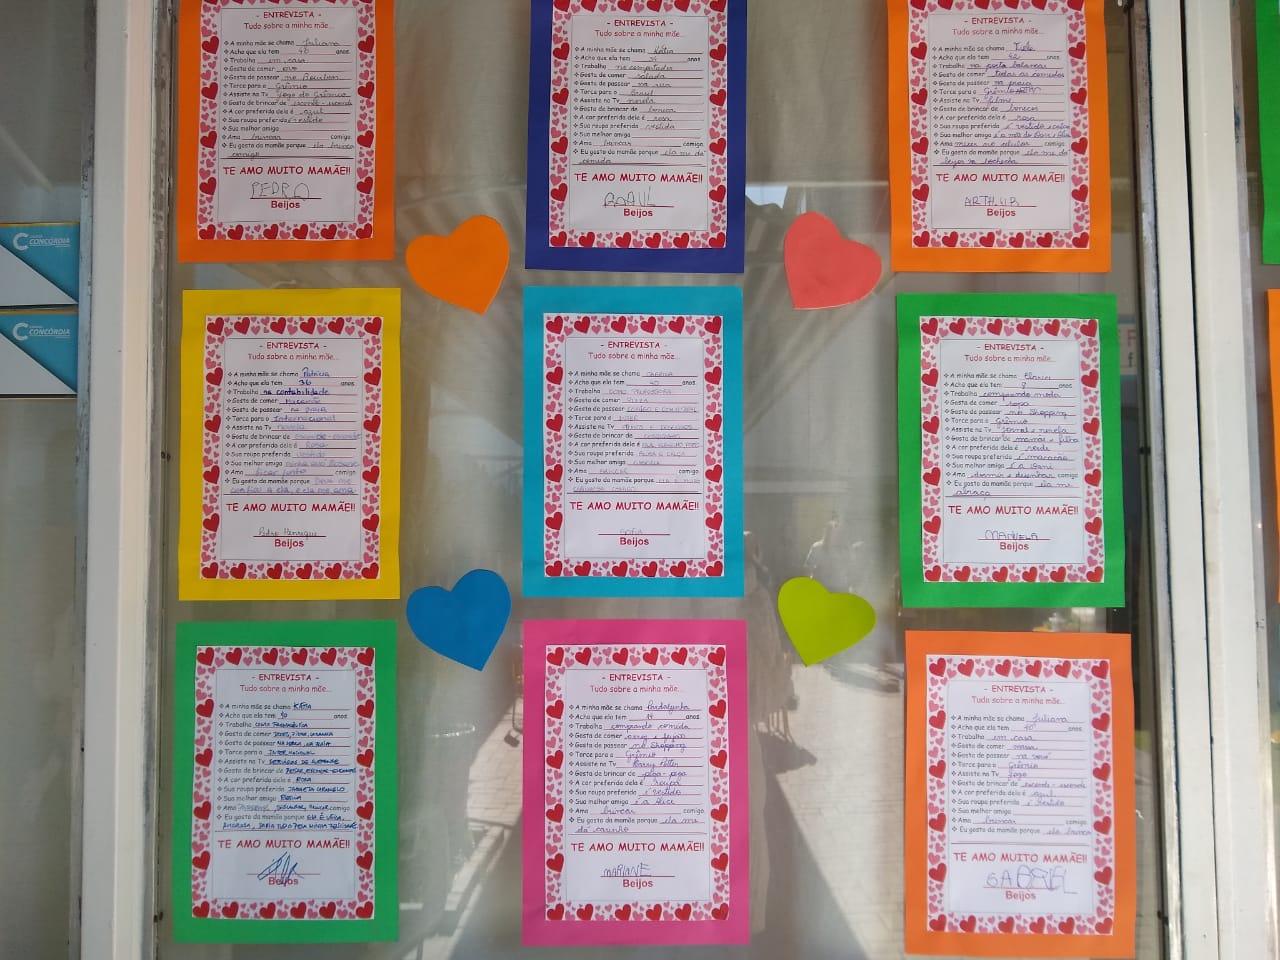 - ENTREVISTA -
Tudo sobre a minha mãe...
A minha mãe se chama Juliana
Acho que ela tem 40 anos.
Trabalha em casa
Gosta de comer ovo
Gosta de passear no Bourbon
Torce para o Grêmio
Assiste na Tv jogo do Grêmio
Gosta de brincar de esconde-esconde
A cor preferida dela é azul
Sua roupa preferida é vestido
Sua melhor amiga
Ama brincar comigo.
Eu gosto da mamãe porque ela brinca
comigo
TE AMO MUITO MAMÃE!!
PEDRO
Beijos
- ENTREVISTA -
Tudo sobre a minha mãe...
A minha mãe se chama Kátia
Acho que ela tem anos.
Trabalha no computador
Gosta de comer salada
Gosta de passear na rua
Torce para o Brasil
Assiste na Tv novela
Gosta de brincar de boneca
A cor preferida dela é rosa
Sua roupa preferida vestido
Sua melhor amiga
Ama brincar comigo.
Eu gosto da mamãe porque ela me dá
comida
TE AMO MUITO MAMÃE!!
Beijos
- ENTREVISTA -
Tudo sobre a minha mãe...
A minha mãe se chama
Acho que ela tem 42 anos.
Trabalha na porto
Gosta de comer todas as comidas
Gosta de passear na praça
Torce para o Grêmio
Assiste na Tv filme
Gosta de brincar de bonecos
A cor preferida dela é rosa
Sua roupa preferida é vestido e calça
Sua melhor amiga é a mãe do Davi e
Ama mexer no celular comigo.
Eu gosto da mamãe porque ela me dá
beijos na bochecha
TE AMO MUITO MAMÃE!!
ARTHUR
Beijos
CONCÓRDIA
CONCÓRDIA
- ENTREVISTA -
Tudo sobre a minha mãe...
A minha mãe se chama Patrícia
Acho que ela tem 36 anos.
Trabalha na contabilidade
Gosta de comer Macarrão
Gosta de passear na praia
Torce para o Internacional
Assiste na Tv novela
Gosta de brincar de esconde-esconde
A cor preferida dela é Rosa
Sua roupa preferida vestido
Sua melhor amiga minha avó
Ama ficar junto comigo.
Eu gosto da mamãe porque Deus me
confiou a ela, e ela me ama
TE AMO MUITO MAMÃE!!
Pedro Henrique
Beijos
- ENTREVISTA -
Tudo sobre a minha mãe...
A minha mãe se chama
Acho que ela tem 40 anos.
Trabalha COMO PROFESSORA
Gosta de comer PIZZA
Gosta de passear COMIGO E COM O PAI
Torce para o INTER
Assiste na Tv FILMES E DESENHOS
Gosta de brincar de
A cor preferida dela é
Sua roupa preferida BLUSA E CALÇA
Sua melhor amiga
Ama BRINCAR comigo.
Eu gosto da mamãe porque ELA É MUITO
CARINHOSA COMIGO
TE AMO MUITO MAMÃE!!
SOFIA
Beijos
- ENTREVISTA -
Tudo sobre a minha mãe...
A minha mãe se chama
Acho que ela tem 8 anos.
Trabalha comprando moda
Gosta de comer
Gosta de passear no Shopping
Torce para o Grêmio
Assiste na Tv Jornal e novela
Gosta de brincar de mamãe e filha
A cor preferida dela é verde
Sua roupa preferida é macacão
Sua melhor amiga é a Dani
Ama dormir e desenhar comigo.
Eu gosto da mamãe porque ela me
abraça
TE AMO MUITO MAMÃE!!
MANUELA
Beijos
- ENTREVISTA -
Tudo sobre a minha mãe...
A minha mãe se chama KÁTIA
Acho que ela tem 40 anos.
Trabalha COMO FARMACÊUTICA
Gosta de comer DOCES, PIZZA, LASANHA
Gosta de passear NA PRAÇA, NA PRAIA
Torce para o INTERNACIONAL
Assiste na Tv
Gosta de brincar de PEGAR, ESCONDE-ESCONDE
A cor preferida dela é ROSA
Sua roupa preferida JAQUETA CARAMELO
Sua melhor amiga
Ama PASSEAR, comigo.
Eu gosto da mamãe porque ELA É LINDA,
AMOROSA, FARIA TUDO PELA MINHA FELICIDADE
TE AMO MUITO MAMÃE!!
Beijos
- ENTREVISTA -
Tudo sobre a minha mãe...
A minha mãe se chama
Acho que ela tem 14 anos.
Trabalha comprando comida
Gosta de comer arroz e feijão
Gosta de passear no Shopping
Torce para o Grêmio
Assiste na Tv Harry Potter
Gosta de brincar de pega-pega
A cor preferida dela é roupa
Sua roupa preferida é vestido
Sua melhor amiga é a Alice
Ama brincar comigo.
Eu gosto da mamãe porque ela me
dá carinho
TE AMO MUITO MAMÃE!!
MARIANE
Beijos
- ENTREVISTA -
Tudo sobre a minha mãe...
A minha mãe se chama Juliana
Acho que ela tem 40 anos.
Trabalha em casa
Gosta de comer massa
Gosta de passear na vovó
Torce para o Grêmio
Assiste na Tv jogo
Gosta de brincar de esconde-esconde
A cor preferida dela é azul
Sua roupa preferida é vestido
Sua melhor amiga
Ama brincar comigo.
Eu gosto da mamãe porque ela brinca
TE AMO MUITO MAMÃE!!
GABRIEL
Beijos